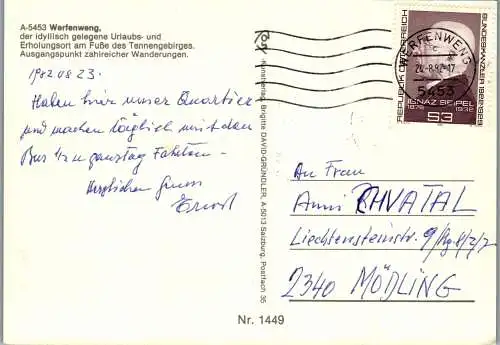 A-5453 Werfenweng,
der idyllisch gelegene Urlaubs- und
Erholungsort am Fuße des Tennengebirges.
Ausgangspunkt zahlreicher Wanderungen.
1982 08 23.
Haben hier unser Quartier
und machen täglich mit dem
Bus 1/2 u ganztag Fahrten
Herzlichen Gruss
Ernst
Kunstverlag, Brigitte DAVID-GRÜNDLER, A-5013 Salzburg, Postfach 35
WERFENWENG
5453
REPUBLIK ÖSTERREICH
BUNDESKANZLER
IGNAZ SEIPEL
S3
An Frau
Anni CHVATAL
Liechtensteinstr. 9/
2340 MÖDLING
Nr. 1449